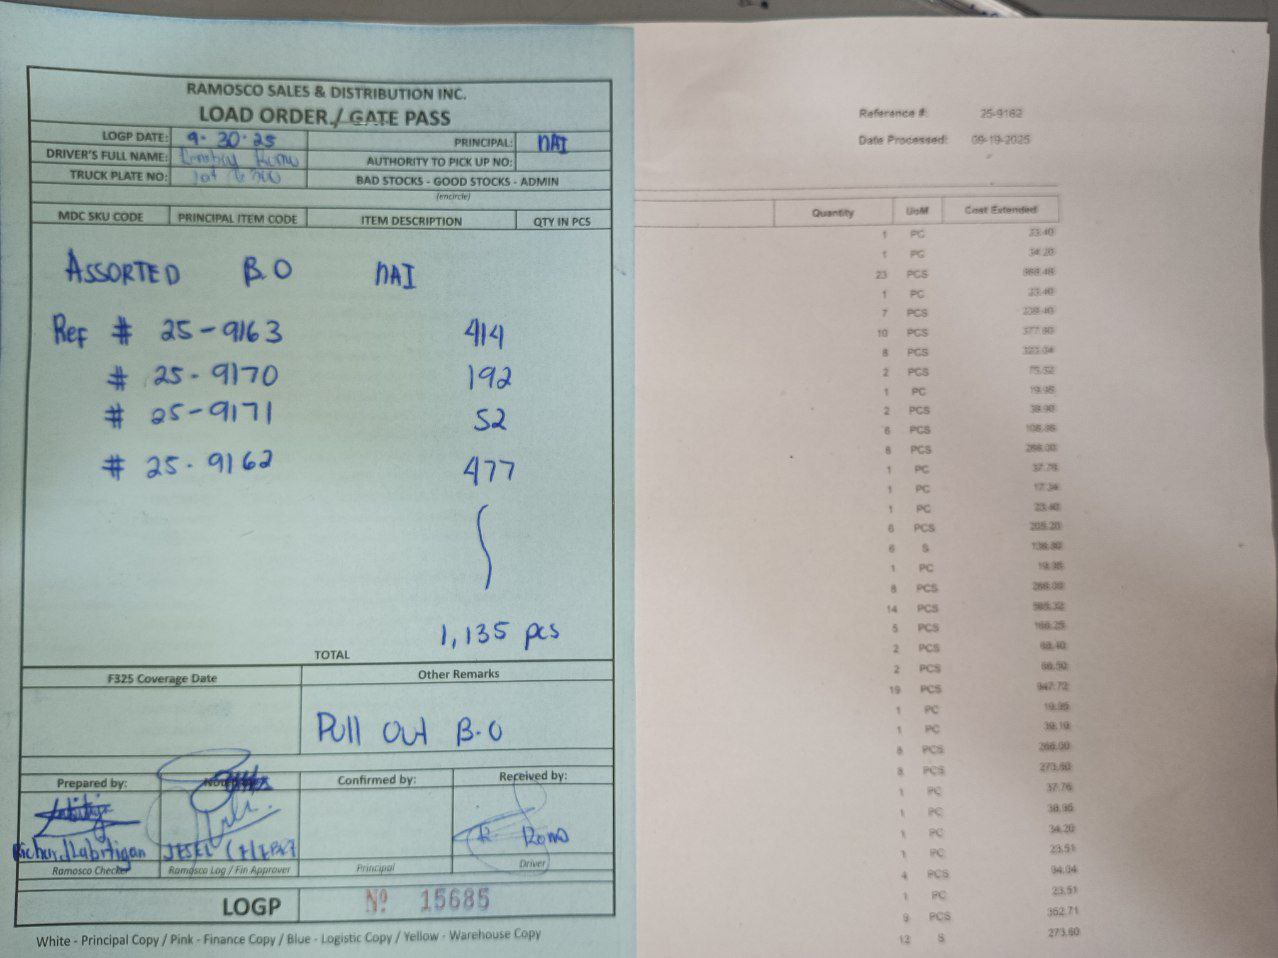 RAMOSCO SALES & DISTRIBUTION INC.
LOAD ORDER / GATE PASS
LOGP DATE: 9-30-25 PRINCIPAL: NAI
DRIVER'S FULL NAME: Romo AUTHORITY TO PICK UP NO:
TRUCK PLATE NO: BAD STOCKS - GOOD STOCKS - ADMIN
(encircle)
MDC SKU CODE PRINCIPAL ITEM CODE ITEM DESCRIPTION QTY IN PCS
ASSORTED B.O NAI
Ref # 25-9163 414
# 25-9170 192
# 25-9171 52
# 25-9162 477
1,135 pcs
TOTAL
F325 Coverage Date Other Remarks
Pull Out B.O
Prepared by: Confirmed by: Received by:
Richard Labitigan R. Romo
Ramosco Checker Ramosco Log / Fin Approver Principal Driver
LOGP Nº 15685
White - Principal Copy / Pink - Finance Copy / Blue - Logistic Copy / Yellow - Warehouse Copy
Reference #: 25-9162
Date Processed: 09-19-2025
Quantity UoM Cost Extended
1 PC 23.40
1 PC 34.20
23 PCS
1 PC 23.40
7 PCS 239.40
10 PCS 377.60
8 PCS
2 PCS 75.52
1 PC 19.95
2 PCS 39.90
6 PCS
8 PCS 266.00
1 PC 37.76
1 PC 17.34
1 PC 23.40
6 PCS 205.20
6 S 136.80
1 PC 19.95
8 PCS 266.00
14 PCS
5 PCS 166.25
2 PCS 68.40
2 PCS 66.50
19 PCS 947.72
1 PC 19.95
1 PC 39.19
8 PCS 266.00
8 PCS 273.60
1 PC 37.76
1 PC
1 PC 34.20
1 PC 23.51
4 PCS 94.04
1 PC 23.51
9 PCS 352.71
12 S 273.60